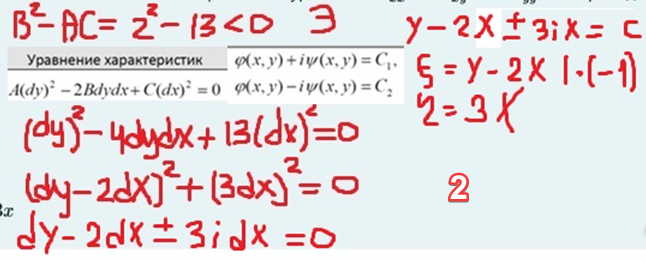 B² - AC = 2² - 13 < 0 Э
Уравнение характеристик
A(dy)² - 2Bdydx + C(dx)² = 0
φ(x, y) + iψ(x, y) = C₁,
φ(x, y) - iψ(x, y) = C₂
(dy)² - 4dydx + 13(dx)² = 0
(dy - 2dx)² + (3dx)² = 0
3x
dy - 2dx ± 3idx = 0
y - 2x ± 3ix = C
ξ = y - 2x | · (-1)
η = 3x
2